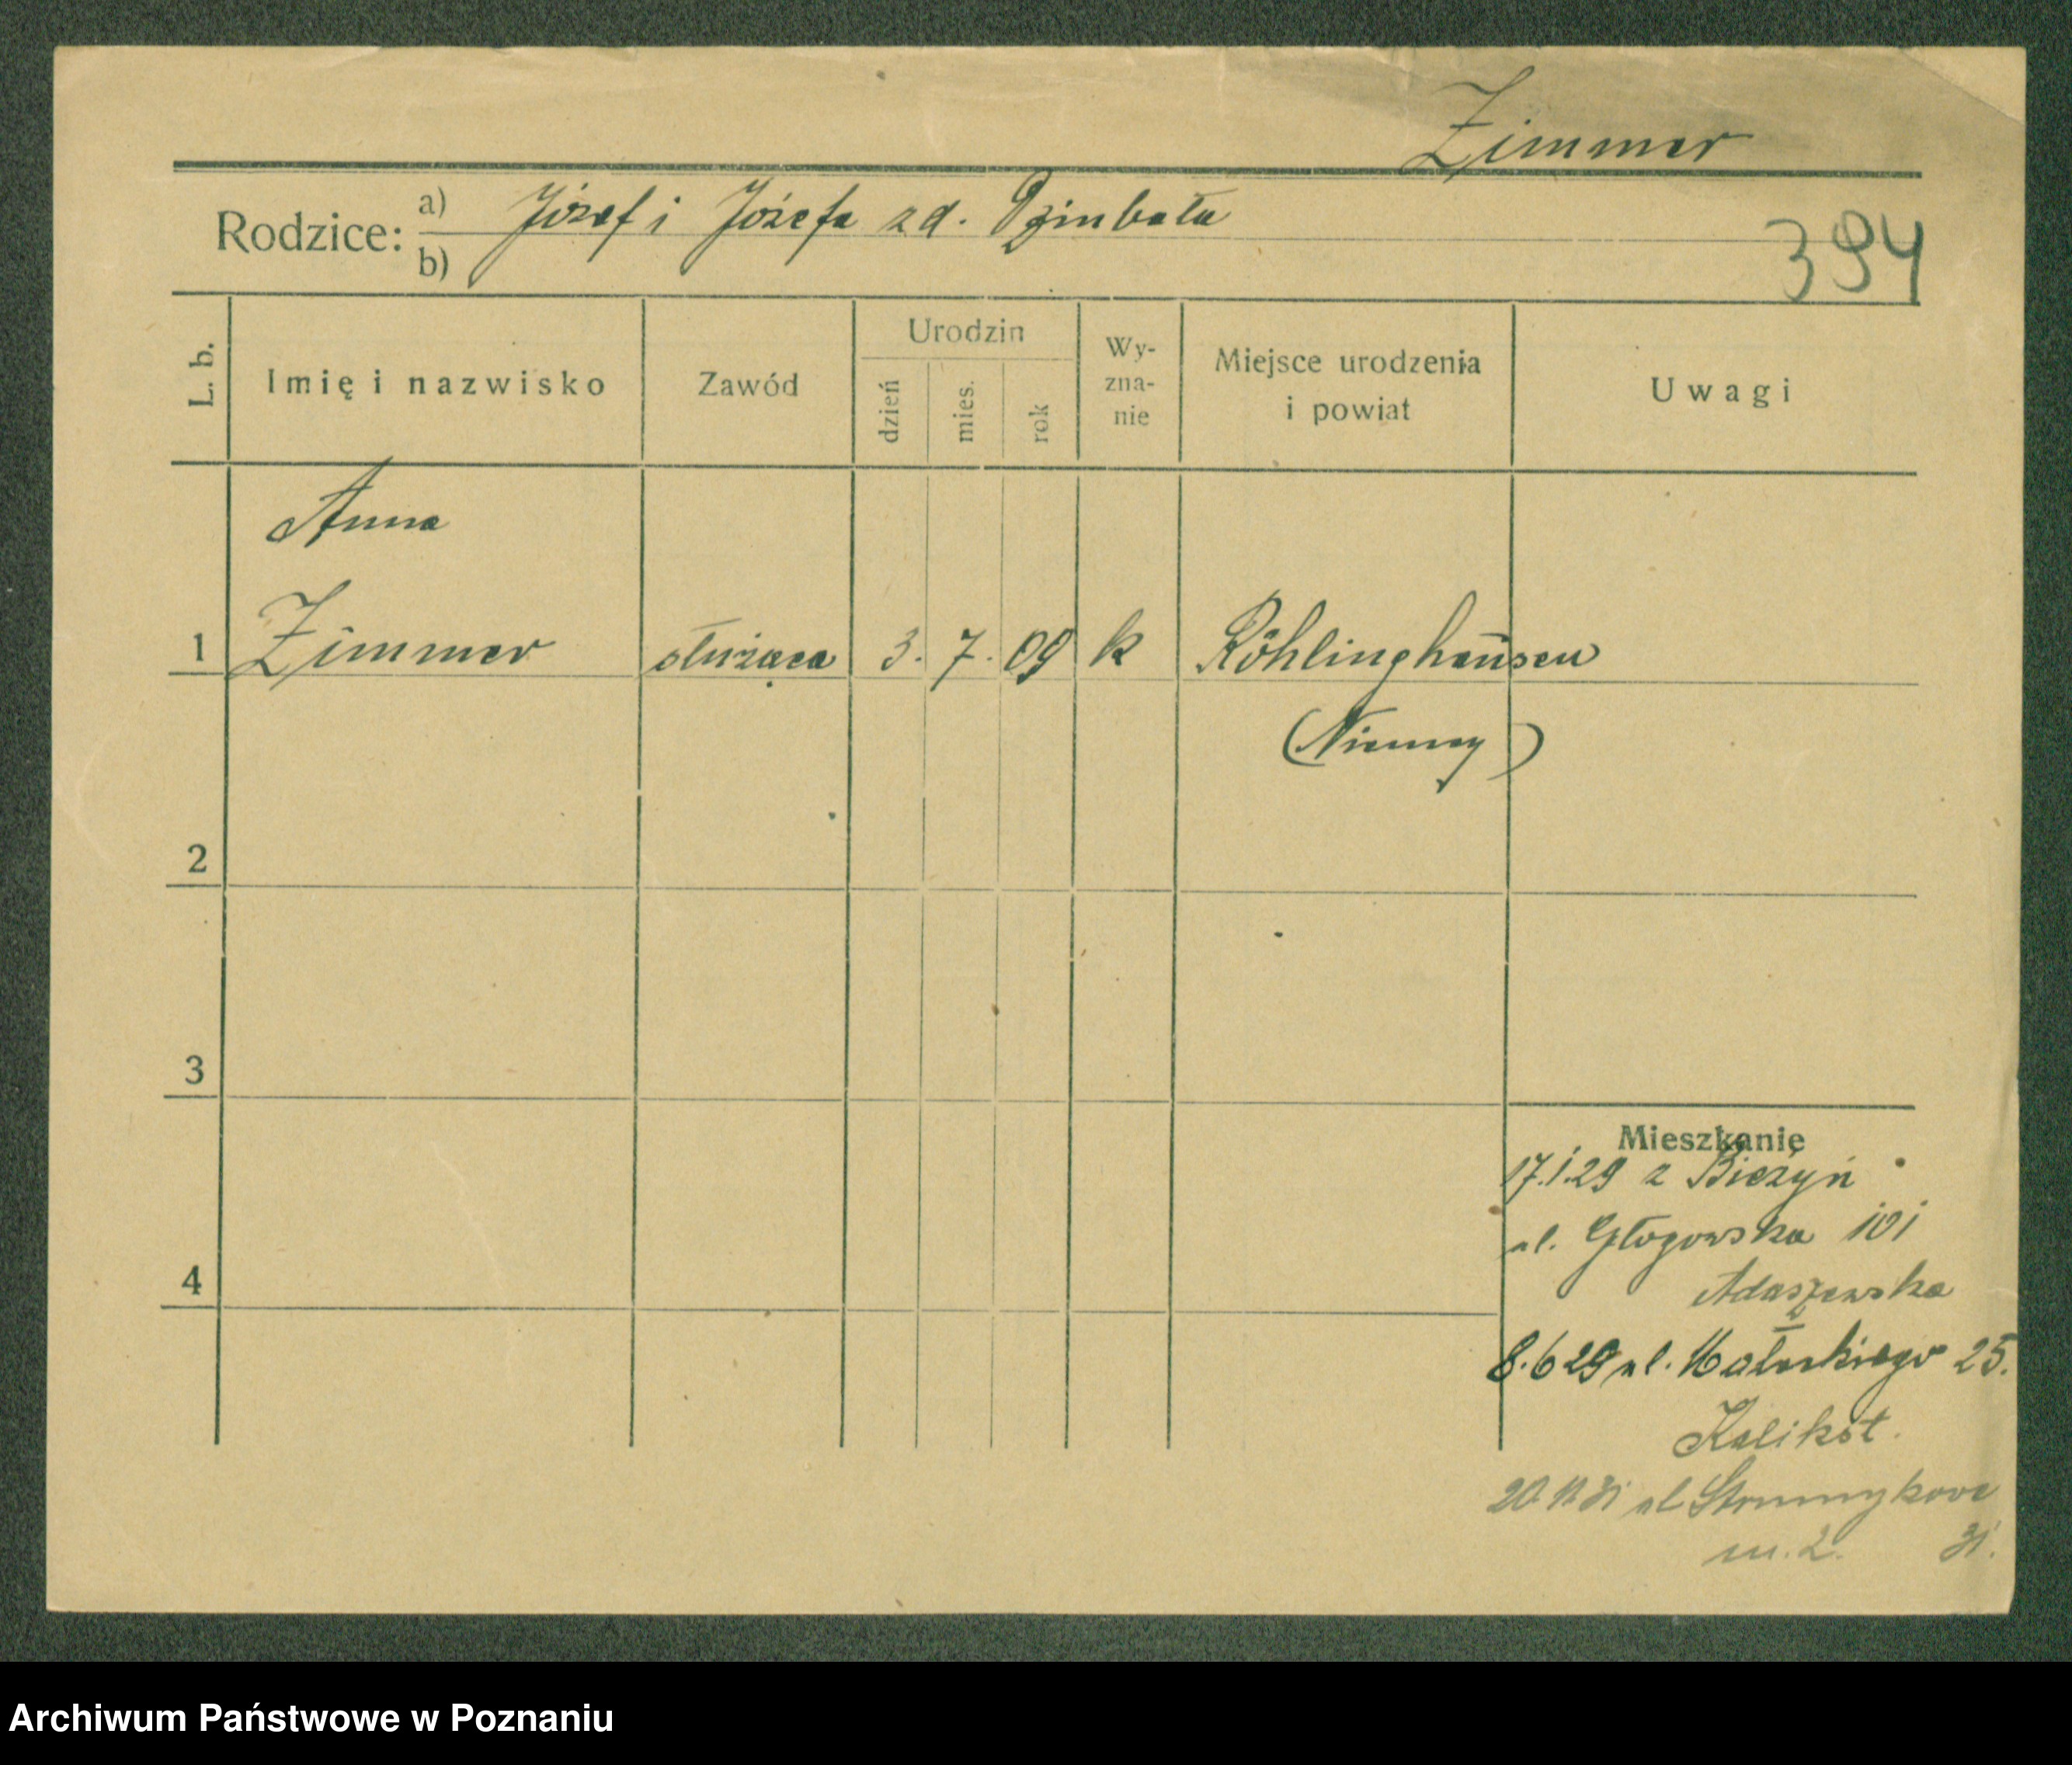 Zimmer
Rodzice: a) Józef i Józefa zd.
b)
394
L. b.
Imię i nazwisko
Zawód
Urodzin
dzień
mies.
rok
Wy-
zna-
nie
Miejsce urodzenia
i powiat
Uwagi
Anna
1 Zimmer służąca 3. 7. 09 k Röhlinghausen
(Niemcy)
2
3
4
Mieszkanie
17.1.29 z Bieżyń
ul. Głogowska 101
Adaszewska
8.6 29 ul. Małeckiego 25.
Kalikst.
20 11 31 ul Strumykowa
m. 2. 31.
Archiwum Państwowe w Poznaniu